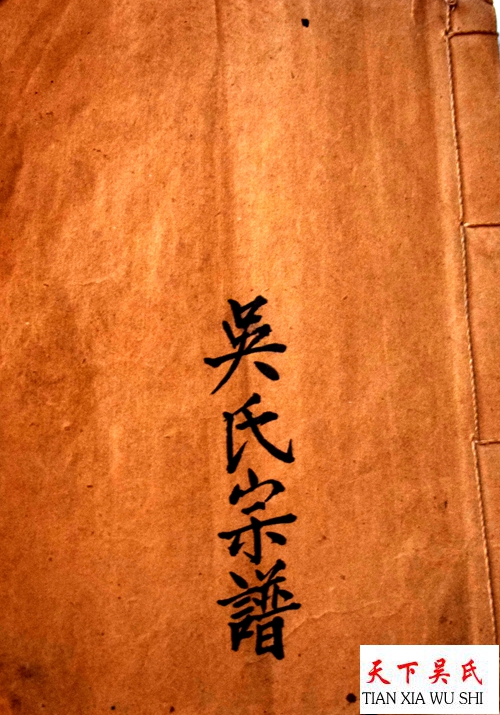 吳氏宗譜
天下吴氏
TIAN XIA WU SHI